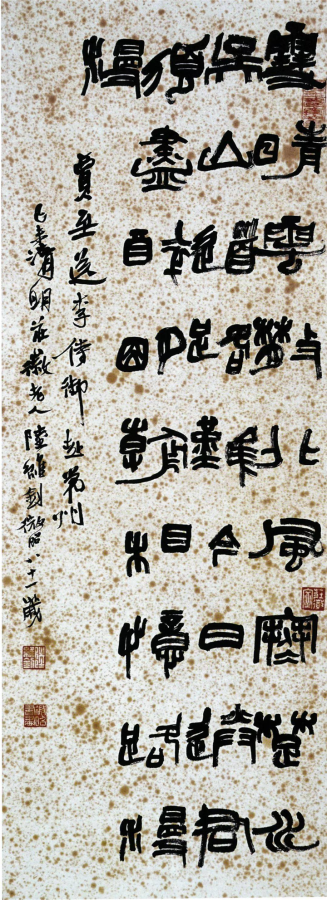 雪晴雲散北風寒楚水
吳山道路難今日送君
須盡醉明朝相憶路漫
漫
賈至送李侍御赴常州
己未清明莊徽老人陸維釗微昭八十一歲